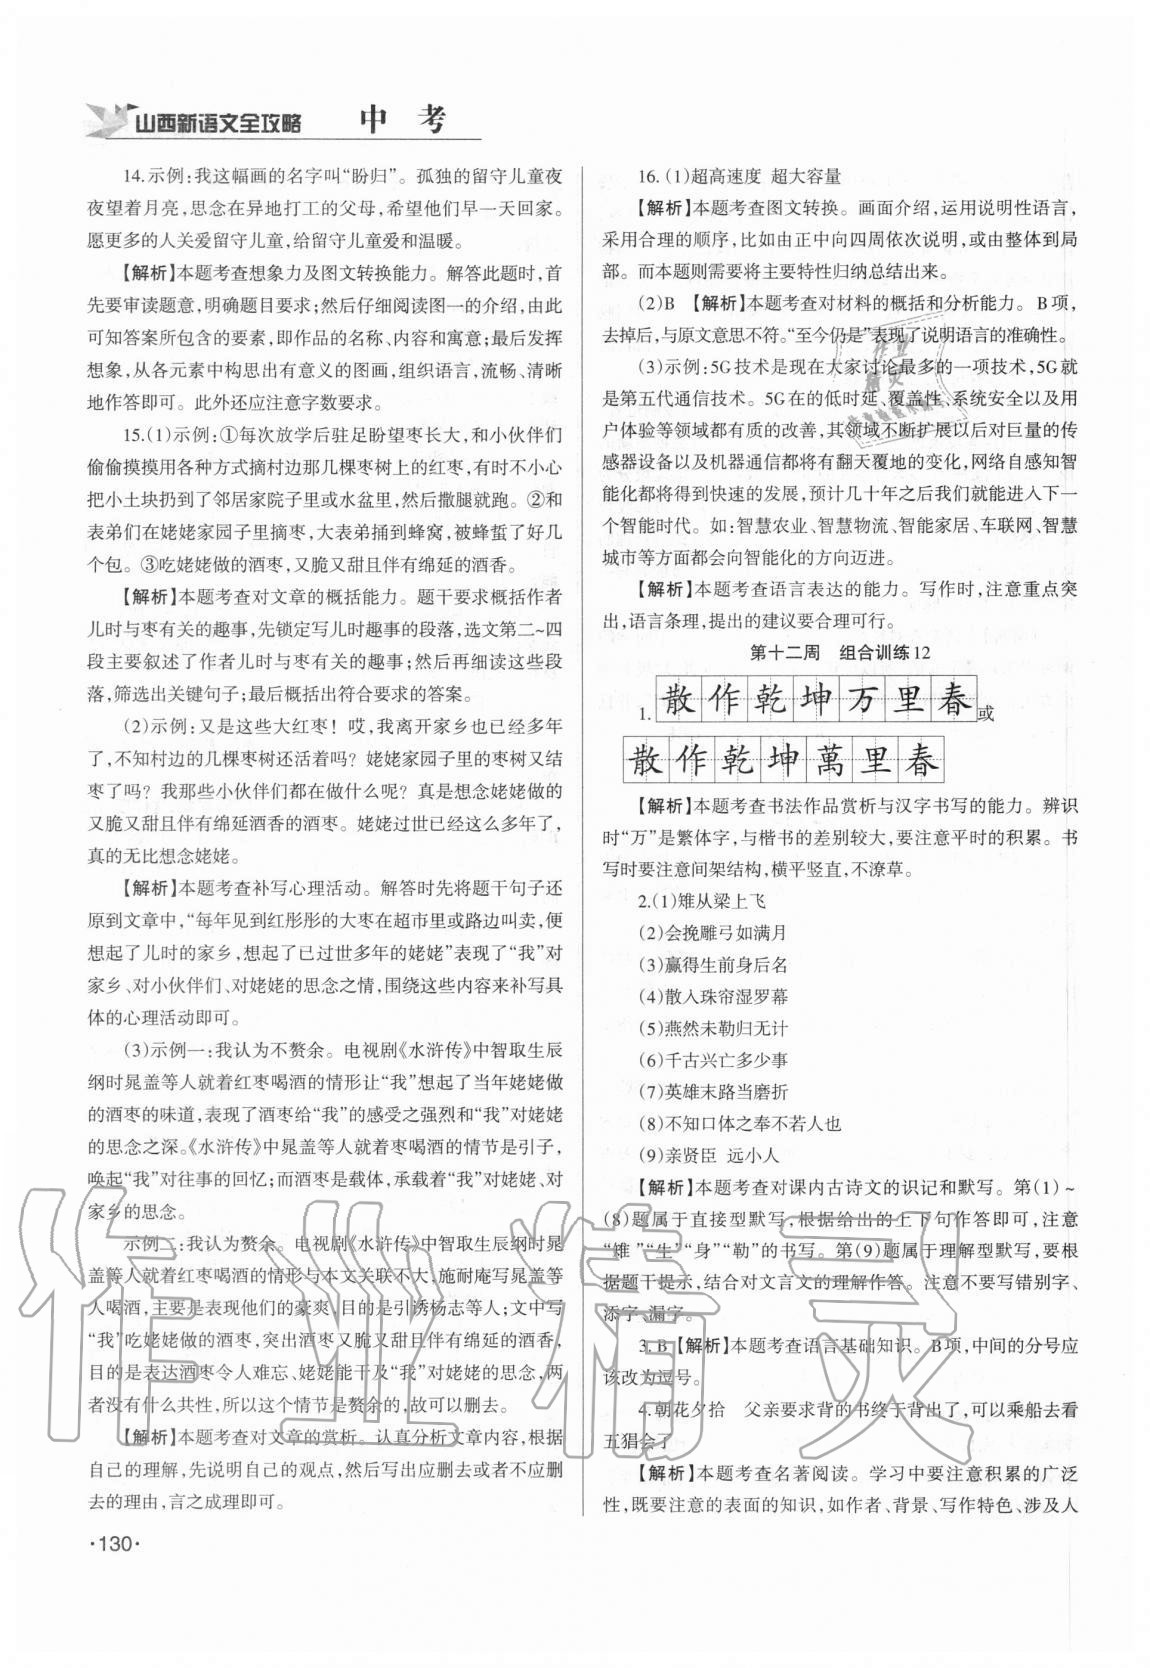 山西新语文全攻略 中考
14.示例:我这幅画的名字叫“盼归”。孤独的留守儿童夜
夜望着月亮,思念在异地打工的父母,希望他们早一天回家。
愿更多的人关爱留守儿童,给留守儿童爱和温暖。
【解析】本题考查想象力及图文转换能力。解答此题时,首
先要审读题意,明确题目要求;然后仔细阅读图一的介绍,由此
可知答案所包含的要素,即作品的名称、内容和寓意;最后发挥
想象,从各元素中构思出有意义的图画,组织语言,流畅、清晰
地作答即可。此外还应注意字数要求。
15.(1)示例:①每次放学后驻足盼望枣长大,和小伙伴们
偷偷摸摸用各种方式摘村边那几棵枣树上的红枣,有时不小心
把小土块扔到了邻居家院子里或水盆里,然后撒腿就跑。②和
表弟们在姥姥家园子里摘枣,大表弟捅到蜂窝,被蜂蜇了好几
个包。③吃姥姥做的酒枣,又脆又甜且伴有绵延的酒香。
【解析】本题考查对文章的概括能力。题干要求概括作者
儿时与枣有关的趣事,先锁定写儿时趣事的段落,选文第二~四
段主要叙述了作者儿时与枣有关的趣事;然后仔细阅读这些段
落,筛选出关键句子;最后概括出符合要求的答案。
(2)示例:又是这些大红枣!哎,我离开家乡也已经多年
了,不知村边的几棵枣树还活着吗?姥姥家园子里的枣树又结
枣了吗?我那些小伙伴们都在做什么呢?真是想姥姥做的
又脆又甜且伴有绵延酒香的酒枣。姥姥过世已经这么多年了,
真的无比想念姥姥。
【解析】本题考查补写心理活动。解答时先将题干句子还
原到文章中,“每年见到红彤彤的大枣在超市里或路边叫卖,便
想起了儿时的家乡,想起了已过世多年的姥姥”表现了“我”对
家乡、对小伙伴们、对姥姥的思念之情,围绕这些内容来补写具
体的心理活动即可。
(3)示例一:我认为不赘余。电视剧《水浒传》中智取生辰
纲时晁盖等人就着红枣喝酒的情形让“我”想起了当年姥姥做
的酒枣的味道,表现了酒枣给“我”的感受之强烈和“我”对姥姥
的思念之深。《水浒传》中晁盖等人就着枣喝酒的情节是引子,
唤起“我”对往事的回忆;而酒枣是载体,承载“我”对姥姥、对
家乡的思念。
示例二:我认为赘余。电视剧《水浒传》中智取生辰纲时晁
盖等人就着红枣喝酒的情形与本文关联不大,施耐庵写晁盖等
人喝酒,主要是表现他们的豪爽,目的是引诱杨志等人;文中写
“我”吃姥姥做的酒枣,突出酒枣又脆又甜且伴有绵延的酒香,
目的是表达酒枣令人难忘、姥姥能干及“我”对姥姥的思念,两
者没有什么共性,所以这个情节是赘余的,故可以删去。
【解析】本题考查对文章的赏析。认真分析文章内容,根据
自己的理解,先说明自己的观点,然后写出应删去或者不应删
去的理由,言之成理即可。
·130·
16.(1)超高速度 超大容量
【解析】本题考查图文转换。画面介绍,运用说明性语言,
采用合理的顺序,比如由正中向四周依次说明,或由整体到局
部。而本题则需要将主要特性归纳总结出来。
(2)B 【解析】本题考查对材料的概括和分析能力。B项,
去掉后,与原文意思不符。“至今仍是”表现了说明语言的准确性。
(3)示例:5G技术是现在大家讨论最多的一项技术,5G就
是第五代通信技术。5G在的低时延、覆盖性、系统安全以及用
户体验等领域都有质的改善,其领域不断扩展以后对巨量的传
感器设备以及机器通信都将有翻天覆地的变化,网络自感知智
能化都将得到快速的发展,预计几十年之后我们就能进入下一
个智能时代。如:智慧农业、智慧物流、智能家居、车联网、智慧
城市等方面都会向智能化的方向迈进。
【解析】本题考查语言表达的能力。写作时,注意重点突
出,语言条理,提出的建议要合理可行。
第十二周 组合训练12
1.散作乾坤万里春或
散作乾坤萬里春
【解析】本题考查书法作品赏析与汉字书写的能力。辨识
时“万”是繁体字,与楷书的差别较大,要注意平时的积累。书
写时要注意间架结构,横平竖直,不潦草。
2.(1)雉从梁上飞
(2)会挽雕弓如满月
(3)赢得生前身后名
(4)散入珠帘湿罗幕
(5)燕然未勒归无计
(6)千古兴亡多少事
(7)英雄末路当磨折
(8)不知口体之奉不若人也
(9)亲贤臣 远小人
【解析】本题考查对课内古诗文的识记和默写。第(1)~
(8)题属于直接型默写,根据给出的上下句作答即可,注意
“雉”“生”“身”“勒”的书写。第(9)题属于理解型默写,要根
据题干提示,结合对文言文的理解作答。注意不要写错别字、
添字、漏字。
3.B【解析】本题考查语言基础知识。B项,中间的分号应
该改为逗号。
4.朝花夕拾 父亲要求背的书终于背出了,可以乘船去看
五猖会了
【解析】本题考查名著阅读。学习中要注意积累的广泛
性,既要注意的表面的知识,如作者、背景、写作特色、涉及人
作业精灵
作业
精灵